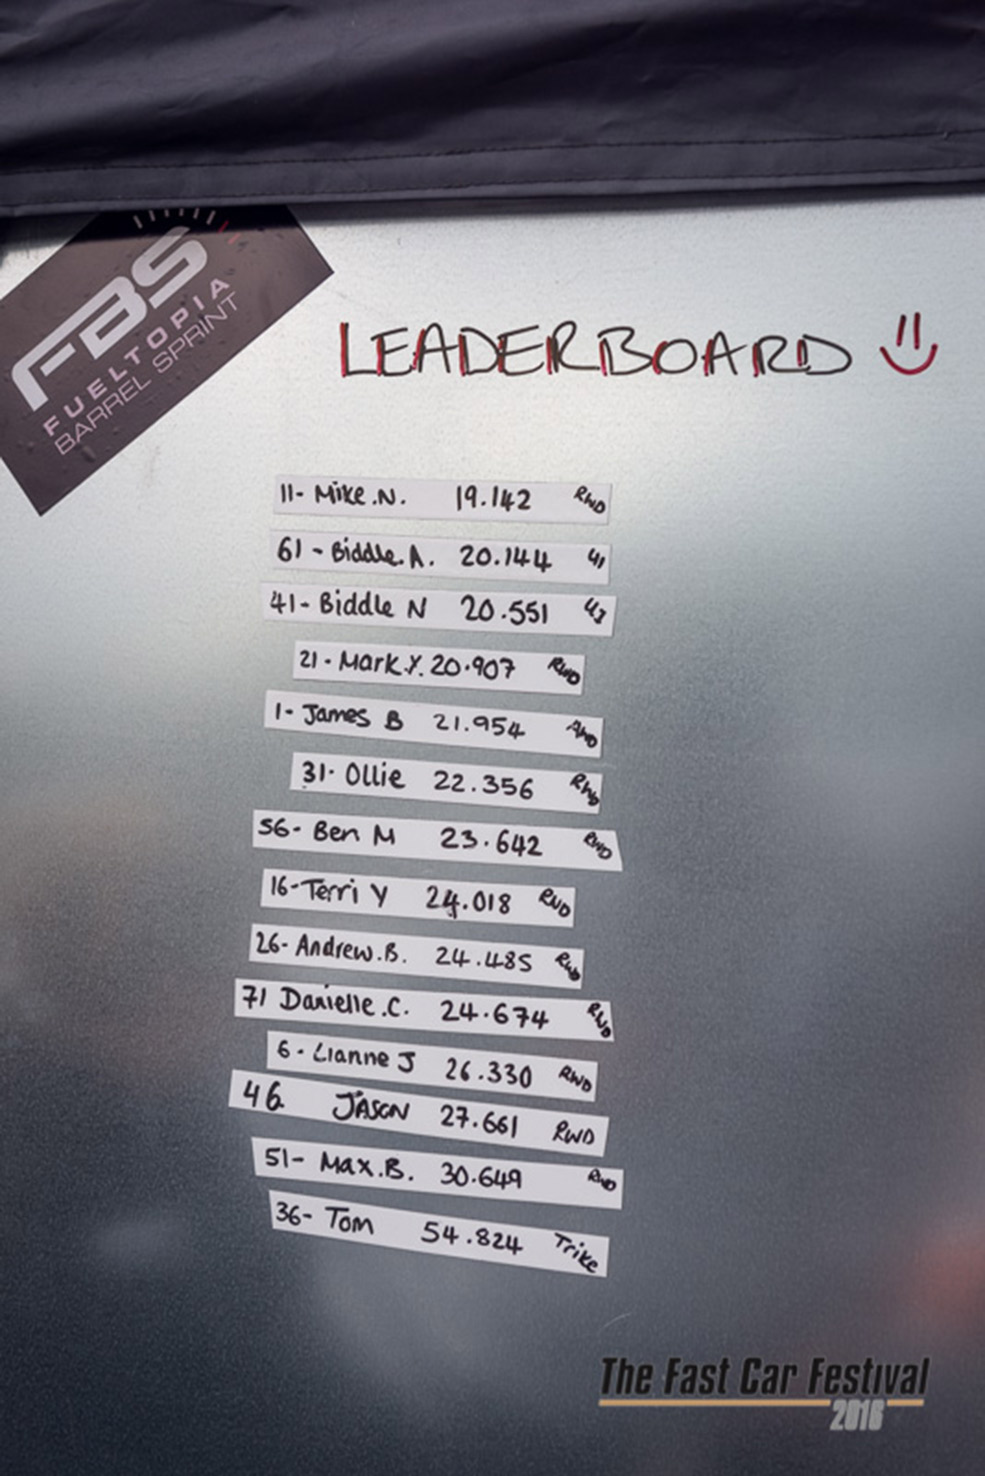 FBS
FUELTOPIA
BARREL SPRINT
LEADERBOARD
11- Mike.N. 19.142 RWD
61 - Biddle.A. 20.144
41- Biddle N 20.551
21- Mark.Y. 20.907 RWD
1- James B 21.954 AWD
31- Ollie 22.356 RWD
56- Ben M 23.642 RWD
16- Terri Y 24.018 RWD
26- Andrew.B. 24.485 RWD
71 Danielle.C. 24.674 RWD
6- Lianne J 26.330 RWD
46 JASON 27.661 RWD
51- Max.B. 30.649 RWD
36- Tom 54.824 Trike
The Fast Car Festival
2016